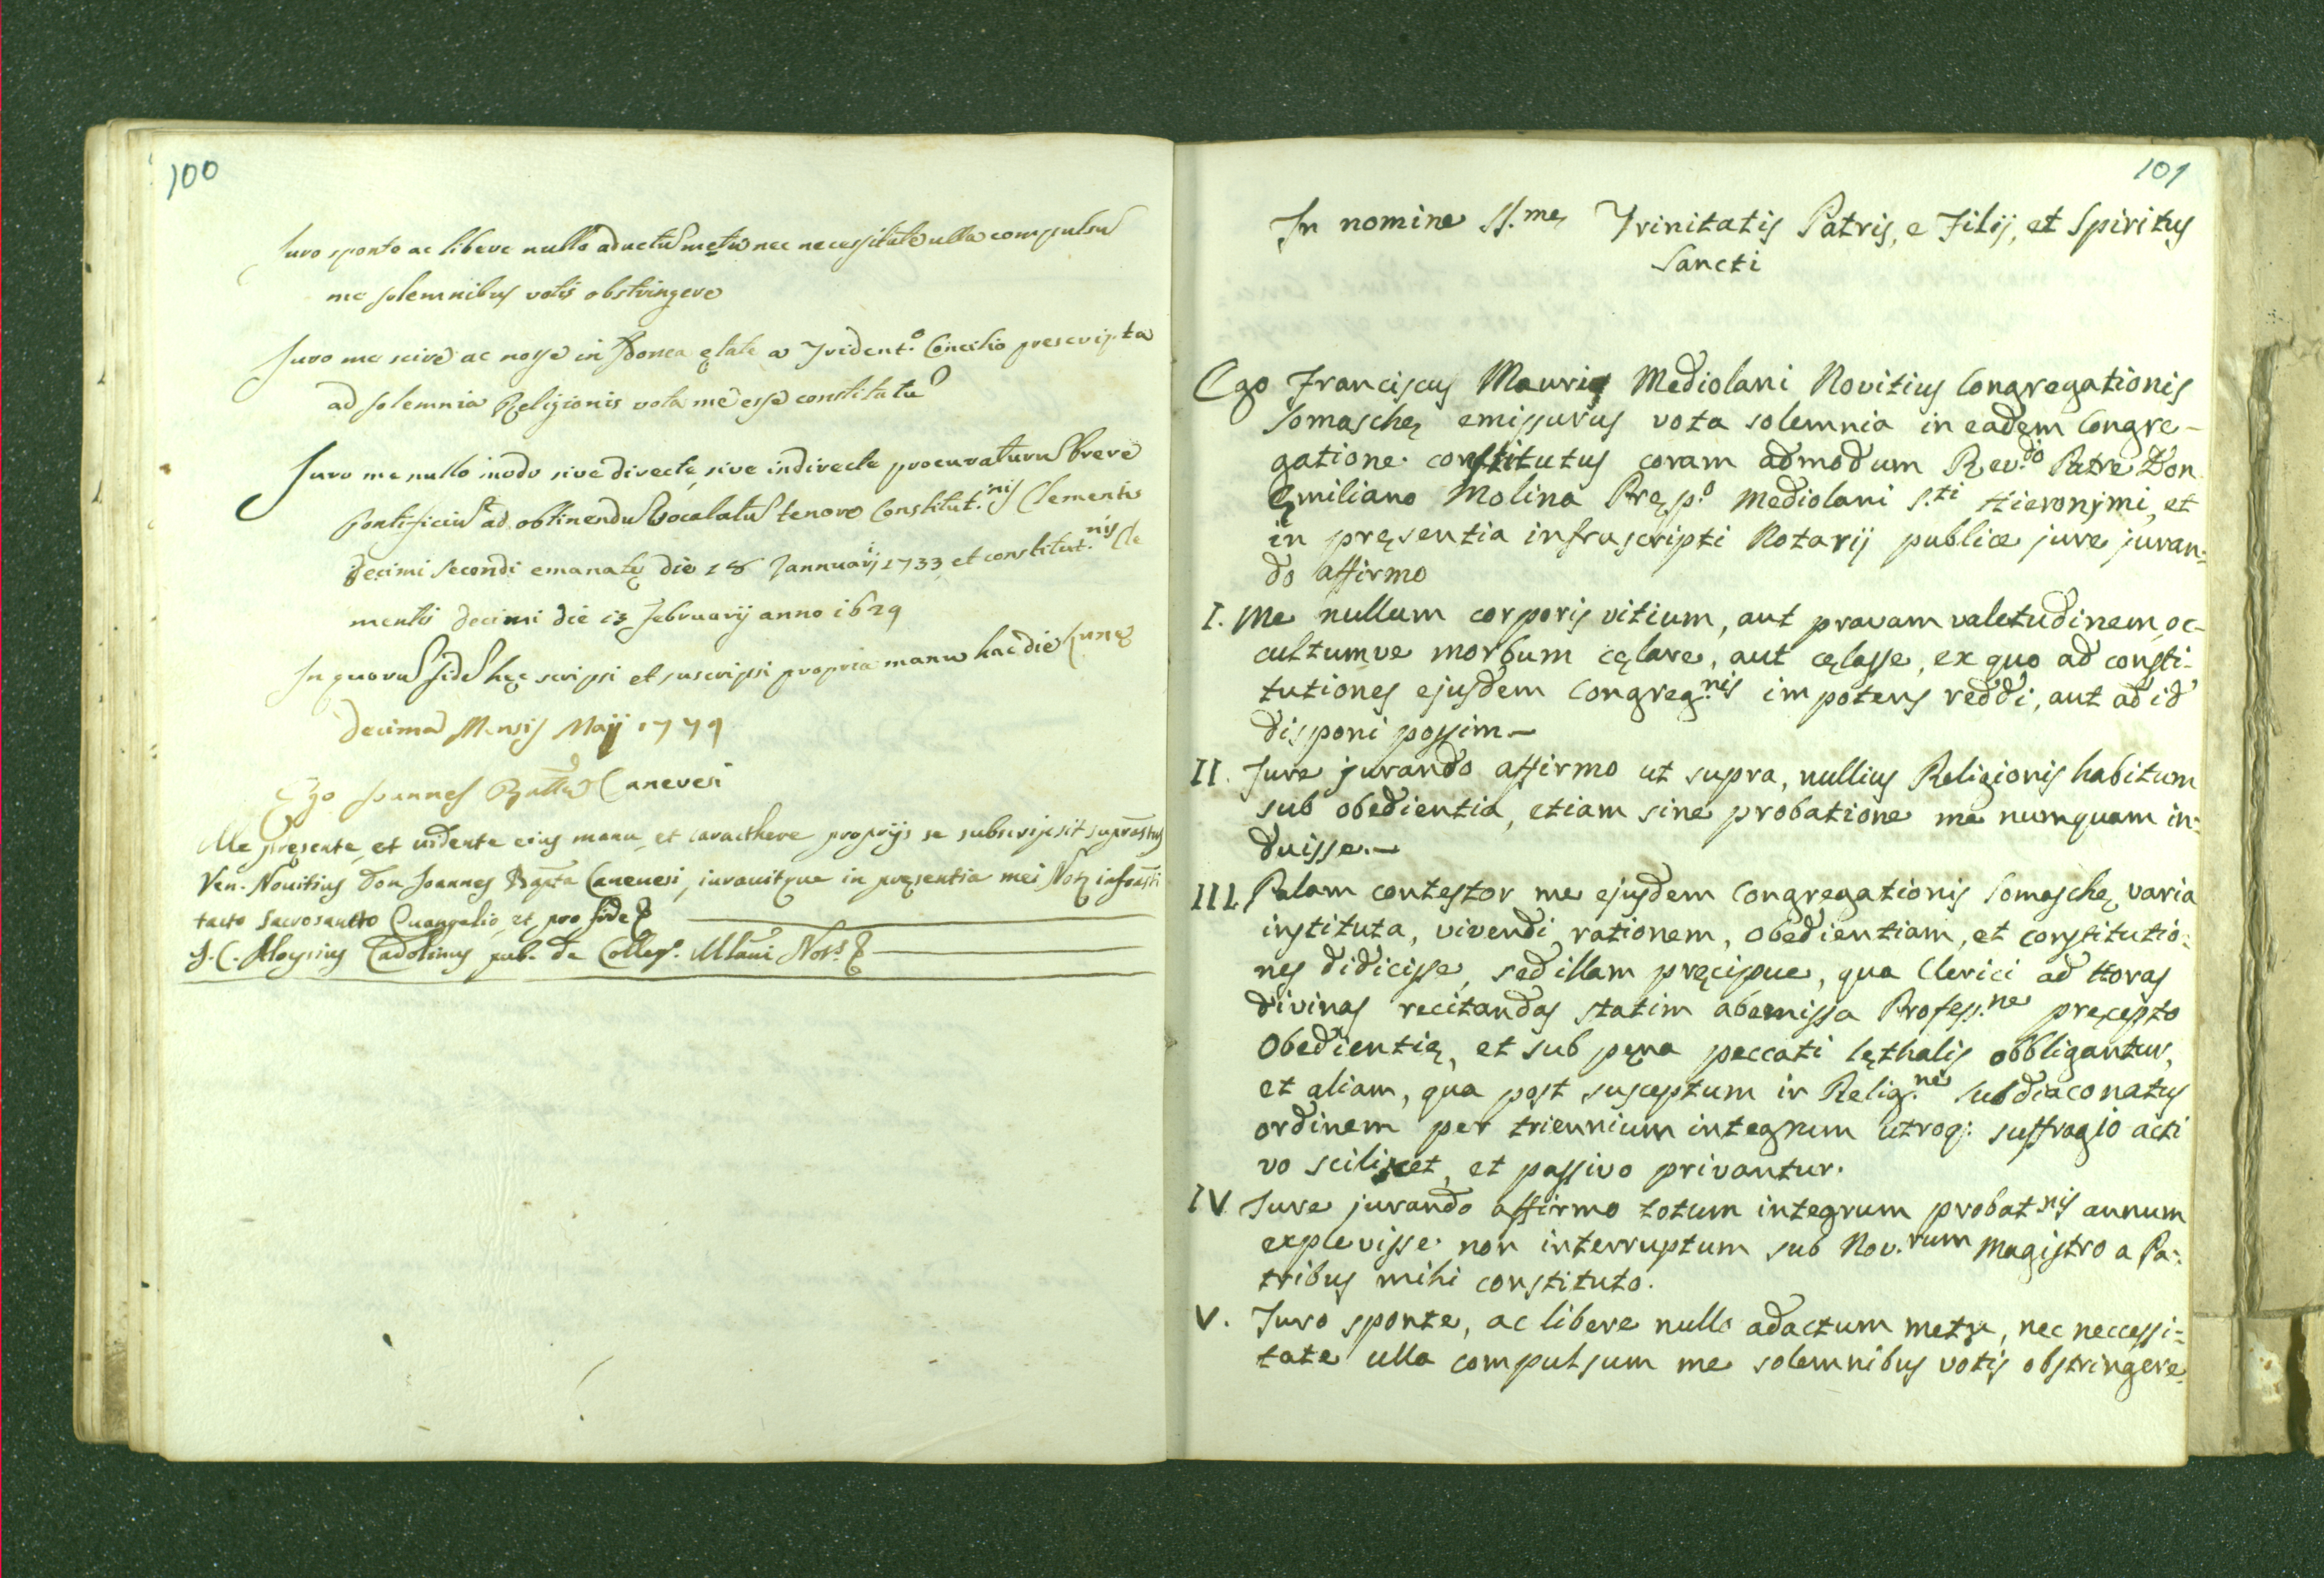 100
Juro sponte ac libere nullo aductũ metu nec necessitate ulla compulsũ
me solemnibus votis obstringere
Juro me scire ac nosse in Idonea ętate a Trident.º Concilio prescripta
ad solemnia Religionis vota me esse constitutũ
Juro me nullo modo sive directe, sive indirecte procuraturũ breve
Pontificiũ ad obtinendũ vocalatũ tenore Constitut.nis Clementis
decimi secondi emanatę die 18 Jannuarij 1733 et constitut.nis Cle
mentis decimi die 13 februarij anno 1629
In quorũ fidẽ hęc scripsi et suscripsi propria manu hac die Lunę
decima Mensis Maij 1779
Ego Joannes Batta Canevesi
Me pręsente, et vidente eius manu, et caracthere proprijs se subscripsit suprastus
Ven. Novitius Don Joannes Bapta Canevesi, iuravitque in pręsentia mei Notę infrasti
tacto sacrosancto Evangelio, et pro fide
J. C. Aloysius Cadolinus pub. de Colleg. Mlani Nots.
101
In nomine SS.mę Trinitatis Patris, e Filij, et Spiritus
Sancti
Ego Franciscus Mauri Mediolani Novitius Congregationis
Somaschę emissurus vota solemnia in eadem Congre-
gatione constitutus coram admodum Rev.do Patre Don
Ęmiliano Molina Pręp.º Mediolani S.ti Hieronymi, et
in pręsentia infrascripti Notarij publice jure juran-
do affirmo
I. Me nullum corporis vitium, aut pravam valetudinem oc-
cultumve morbum cęlare, aut cęlasse, ex quo ad consti-
tutiones ejusdem Congreg.nis impotens reddi, aut ad id
disponi possim-
II. Jure jurando affirmo ut supra, nullius Religionis habitum
sub obedientia, etiam sine probatione me numquam in-
duisse.-
III. Palam contestor me ejusdem Congregationis Somaschę varia
instituta, vivendi rationem, obedientiam, et constitutio-
nes didicisse, sed illam pręcipue, qua Clerici ad Horas
divinas recitandas statim ab emissa Profess.ne pręcepto
Obedientię, et sub pęna peccati lęthalis obbligantur,
et aliam, qua post susceptum in Relig.ne Subdiaconatus
ordinem per triennium integrum utroq: suffragio acti
vo scilicet, et passivo privantur.
IV Jure jurando affirmo totum integrum probat.nis annum
explevisse non interruptum sub Nov.rum Magistro a Pa-
tribus mihi constituto.
V. Juro sponte, ac libere nullo adactum metu, nec neccessi-
tate ulla compulsum me solemnibus votis obstringere